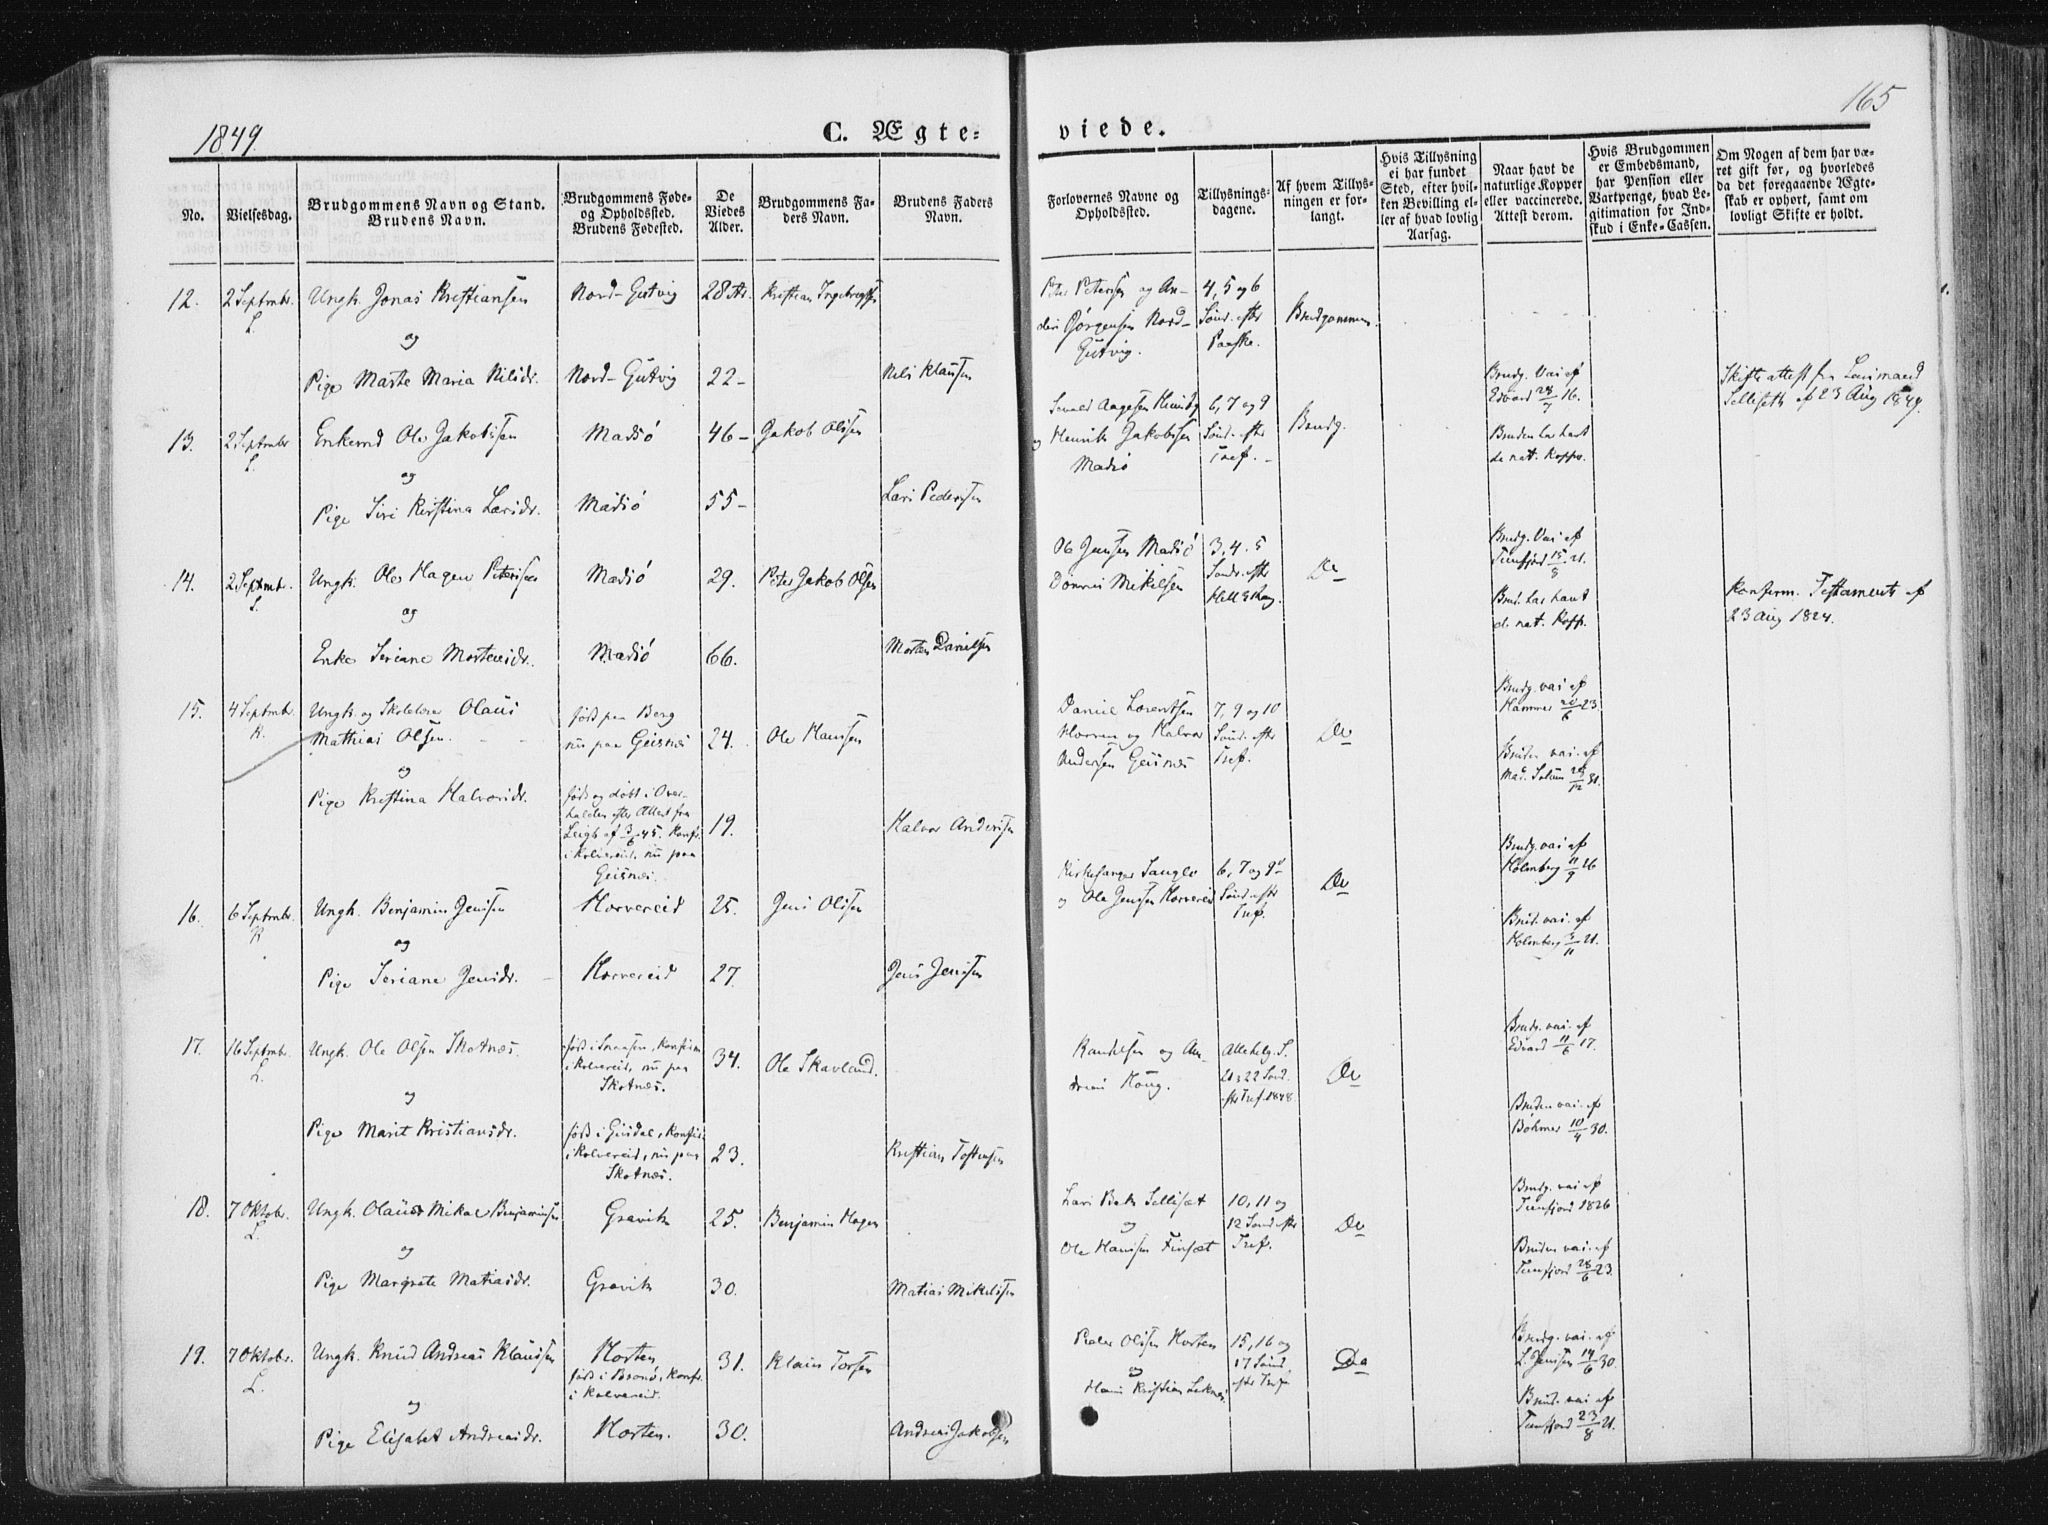 1849.
C. Ægte-
viede.
165
No.
Vielsesdag.
Brudgommens Navn og Stand.
Brudens Navn.
Brudgommens Føde-
og Opholdssted.
Brudens Fødested.
De
Viedes
Alder.
Brudgommens Fa-
ders Navn.
Brudens Faders
Navn.
Forlovernes Navne og
Opholdssted.
Tillysnings-
dagene.
Af hvem Tillys-
ningen er for-
langt.
Hvis Tillysning
ei har fundet
Sted, efter hvil-
ken Bevilling el-
ler af hvad lovlig
Aarsag.
Naar havt de
naturlige Kopper
eller vaccinerede.
Attest derom.
Hvis Brudgommen
er Embedsmand,
har Pension eller
Vartpenge, hvad Le-
gitimation for Ind-
skud i Enke-Cassen.
Om Nogen af dem har væ-
ret gift før, og hvorledes
da det foregaaende Ægte-
skab er ophørt, samt om
lovligt Skifte er holdt.
12.
2 Septmbr.
L.
Ungk. Jonas Kristiansen
og
Pige Marte Maria Nilsdr.
Nord-Gutvig
Nord-Gutvig
28 Ar.
22-
Nils Klausen
Peter Petersen og An-
ders Jørgensen Nord-
Gutvig.
4, 5 og 6
Sönd. efter
Paaske.
Brudgommen.
13.
2 Septmbr.
L.
Enkemd Ole Jakobsen
og
Pige Siri Kirstina Larsdr.
Madsö
Madsö
46-
55-
Jakob Olsen
Lars Pedersen
og Henrik Jakobsen
Madsö
6, 7 og 9
Sönd. efter
Tref.
Brudg.
Brudg. Vac. af
Edvard 28/7 16.
Bruden har havt
de nat. Kopper.
Skifteattest fra Lensmand
Sellesæth af 23 Aug 1849.
14.
2 Septmbr.
L.
Ungk. Ole Hagen Petersen
og
Enke Seriane Mortensdr.
Madsö
Madsö
29.
66.
Peter Jakob Olsen
Morten Danielsen
Ob Jensen Madsö
Mikelsen
3, 4, 5
Sönd. efter
Do
Brudg. Vac. af
15/8 21.
Brud. har havt
d. nat. Kopp.
Konferm. Testamente af
23 Aug 1824.
15.
4 Septmbr.
K.
Ungk. og Skolelærer Olaus
Mathias Olsen.
og
Pige Kristina Halvorsdr.
född paa Berg
nu paa Geisnæs
född og döbt i Over-
halden efter Attest fra
af 3/6 45. Konfr.
i Kolvereid, nu paa
Geisnæs.
24.
19.
Ole Hansen
Halvor Andersen
Daniel Lorentsen
Horven og Halvor
Andersen Geisnæs
7, 9 og 10
Sönd. efter
Tref.
Do
Brudg. vac. af
Hammer 20/6 23.
Bruden vac. af
16.
6 Septmbr.
K
Ungk. Benjamin Jensen
og
Pige Seriane Jensdr.
Horvereid
Horvereid
25.
27.
Jens Olsen
Jens Jensen
Kirkesanger
og Ole Jensen Horvereid
6, 7 og 9de
Sönd. efter
Tref.
Do
Brudg. vac. af
Holmberg 11/9 26
Brud. vac. af
Holmberg 3/11 21.
17.
16 Septmbr.
L.
Ungk. Ole Olsen Skotnæs.
og
Pige Marit Kristiansdr.
född i Snaasen, konfirm
i Kolvereid, nu paa
Skotnæs.
i Kolvereid, nu paa
Skotnæs.
34.
23.
Ole Skavland.
Kristian Tostensen
og An-
dreas
Allehelg. S.
21 & 22 Sönd.
efter Tref. 1848
Do
Brudg. vac. af
Edvard 11/6 17.
Bruden vac. af
Bohmer 10/4 30.
18.
7 Oktobr.
L.
Ungk. Olaus Mikal Benjaminsen
og
Pige Margrete Matiasdr.
Gravik
Gravik
25.
30.
Benjamin Hagen
Matias Mikelsen
Lars Sellisæt
og
Ole Hansen Finsæt
10, 11 og
12 Sönd. efter
Tref.
Do
Brudg. vac. af
1826
Bruden vac. af
28/6 23.
19.
7 Oktobr.
L.
Ungk. Knud Andreas Klausen
og
Pige Elisabet Andreasdr.
Horten
född i Brönö, Konfr.
i Kolvereid.
Horten.
31.
30.
Klaus Torsen
Andreas Jakobsen
Peder Olsen Horten
og
Hans Kristian
15, 16 og
17 Sönd.
efter Tref.
Do
Brudg. vac. af
L. Jensen 14/6 30.
Brud. vac. af
23/8 21.